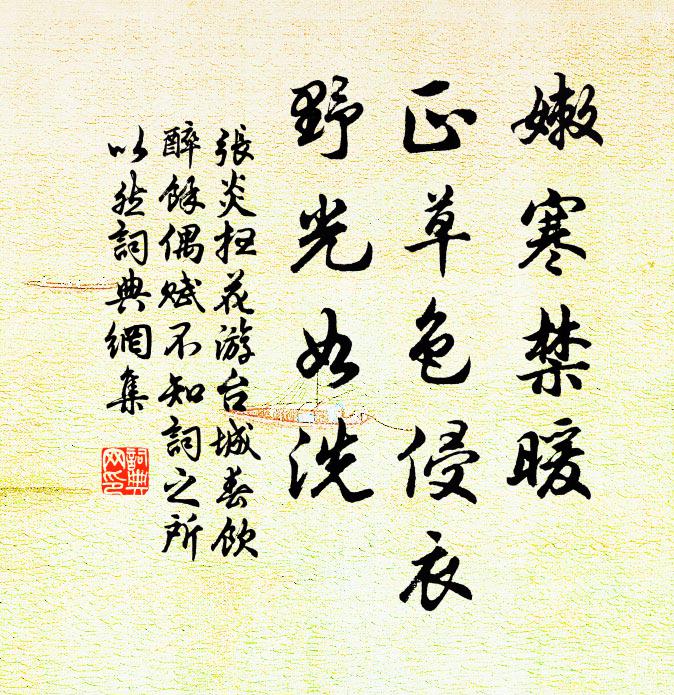 嫩寒禁暖
正草色侵衣
野光如洗
張炎掃花游台城春飲
醉餘偶賦不知詞之所
以然詞典網集
詞典網印